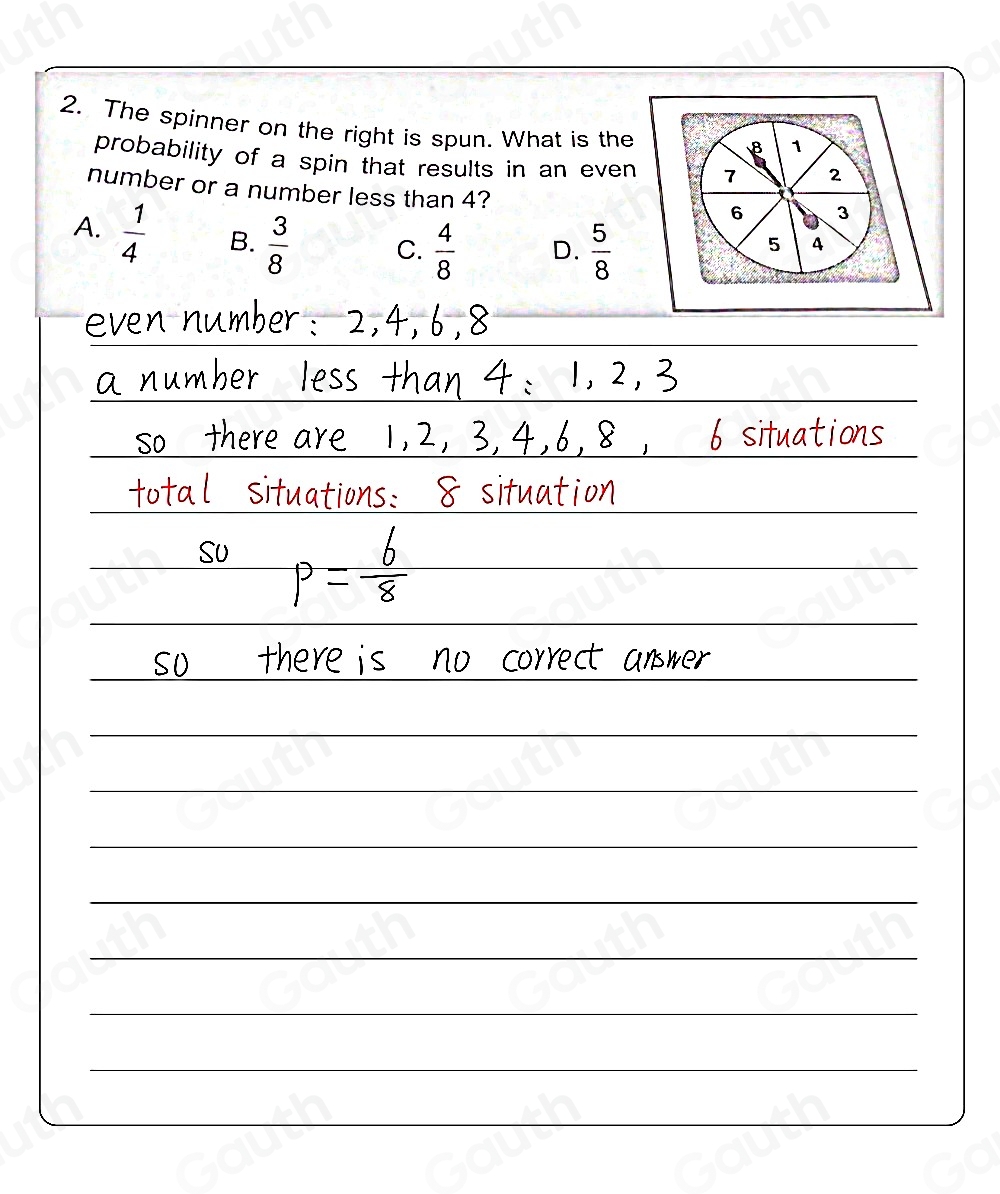 2. The spinner on the right is spun. What is the
probability of a spin that results in an even
number or a number less than 4?
A. 1/4 B. 3/8 C. 4/8 D. 5/8
8 1
7 2
6 3
5 4
even number: 2,4,6,8
a number less than 4: 1,2,3
so there are 1,2,3,4,6,8, 6 situations
total situations: 8 situation
so P=6/8
so there is no correct answer
Gauth